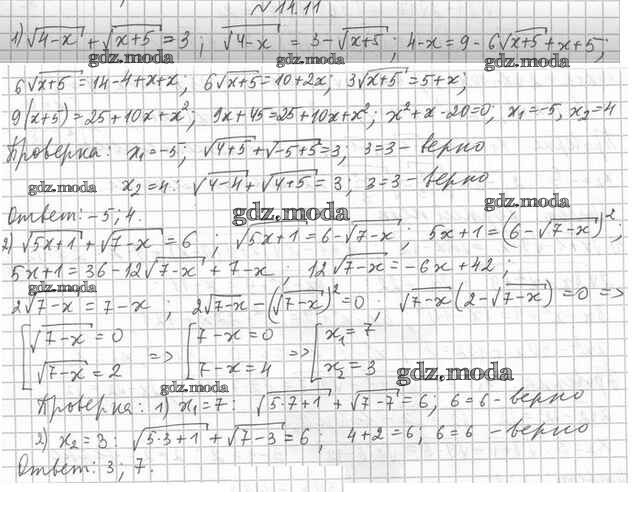 № 14.11
1) √(4-x) + √(x+5) = 3 ; √(4-x) = 3 - √(x+5) ; 4-x = 9 - 6√(x+5) + x+5 ;
gdz.moda gdz.moda
6√(x+5) = 14-4+x+x ; 6√(x+5) = 10+2x ; 3√(x+5) = 5+x ;
9(x+5) = 25+10x+x² ; 9x+45 = 25+10x+x² ; x²+x-20=0 ; x₁=-5, x₂=4
Проверка: x₁=-5 ; √(4+5) + √(-5+5) = 3 ; 3=3 - верно
gdz.moda x₂=4: √(4-4) + √(4+5) = 3 ; 3=3 - верно
gdz.moda gdz.moda
Ответ: -5; 4.
2) √(5x+1) + √(7-x) = 6 ; √(5x+1) = 6 - √(7-x) ; 5x+1 = (6 - √(7-x))² ;
5x+1 = 36 - 12√(7-x) + 7-x ; 12√(7-x) = -6x + 42 ;
gdz.moda
2√(7-x) = 7-x , 2√(7-x) - (√(7-x))² = 0 ; √(7-x) (2 - √(7-x)) = 0 =>
[ √(7-x) = 0 => [ 7-x = 0 => [ x₁ = 7
√(7-x) = 2 7-x = 4 x₂ = 3
gdz.moda gdz.moda
Проверка: 1) x₁=7: √(5·7+1) + √(7-7) = 6 ; 6=6 - верно
2) x₂=3: √(5·3+1) + √(7-3) = 6 ; 4+2=6 ; 6=6 - верно
Ответ: 3; 7.